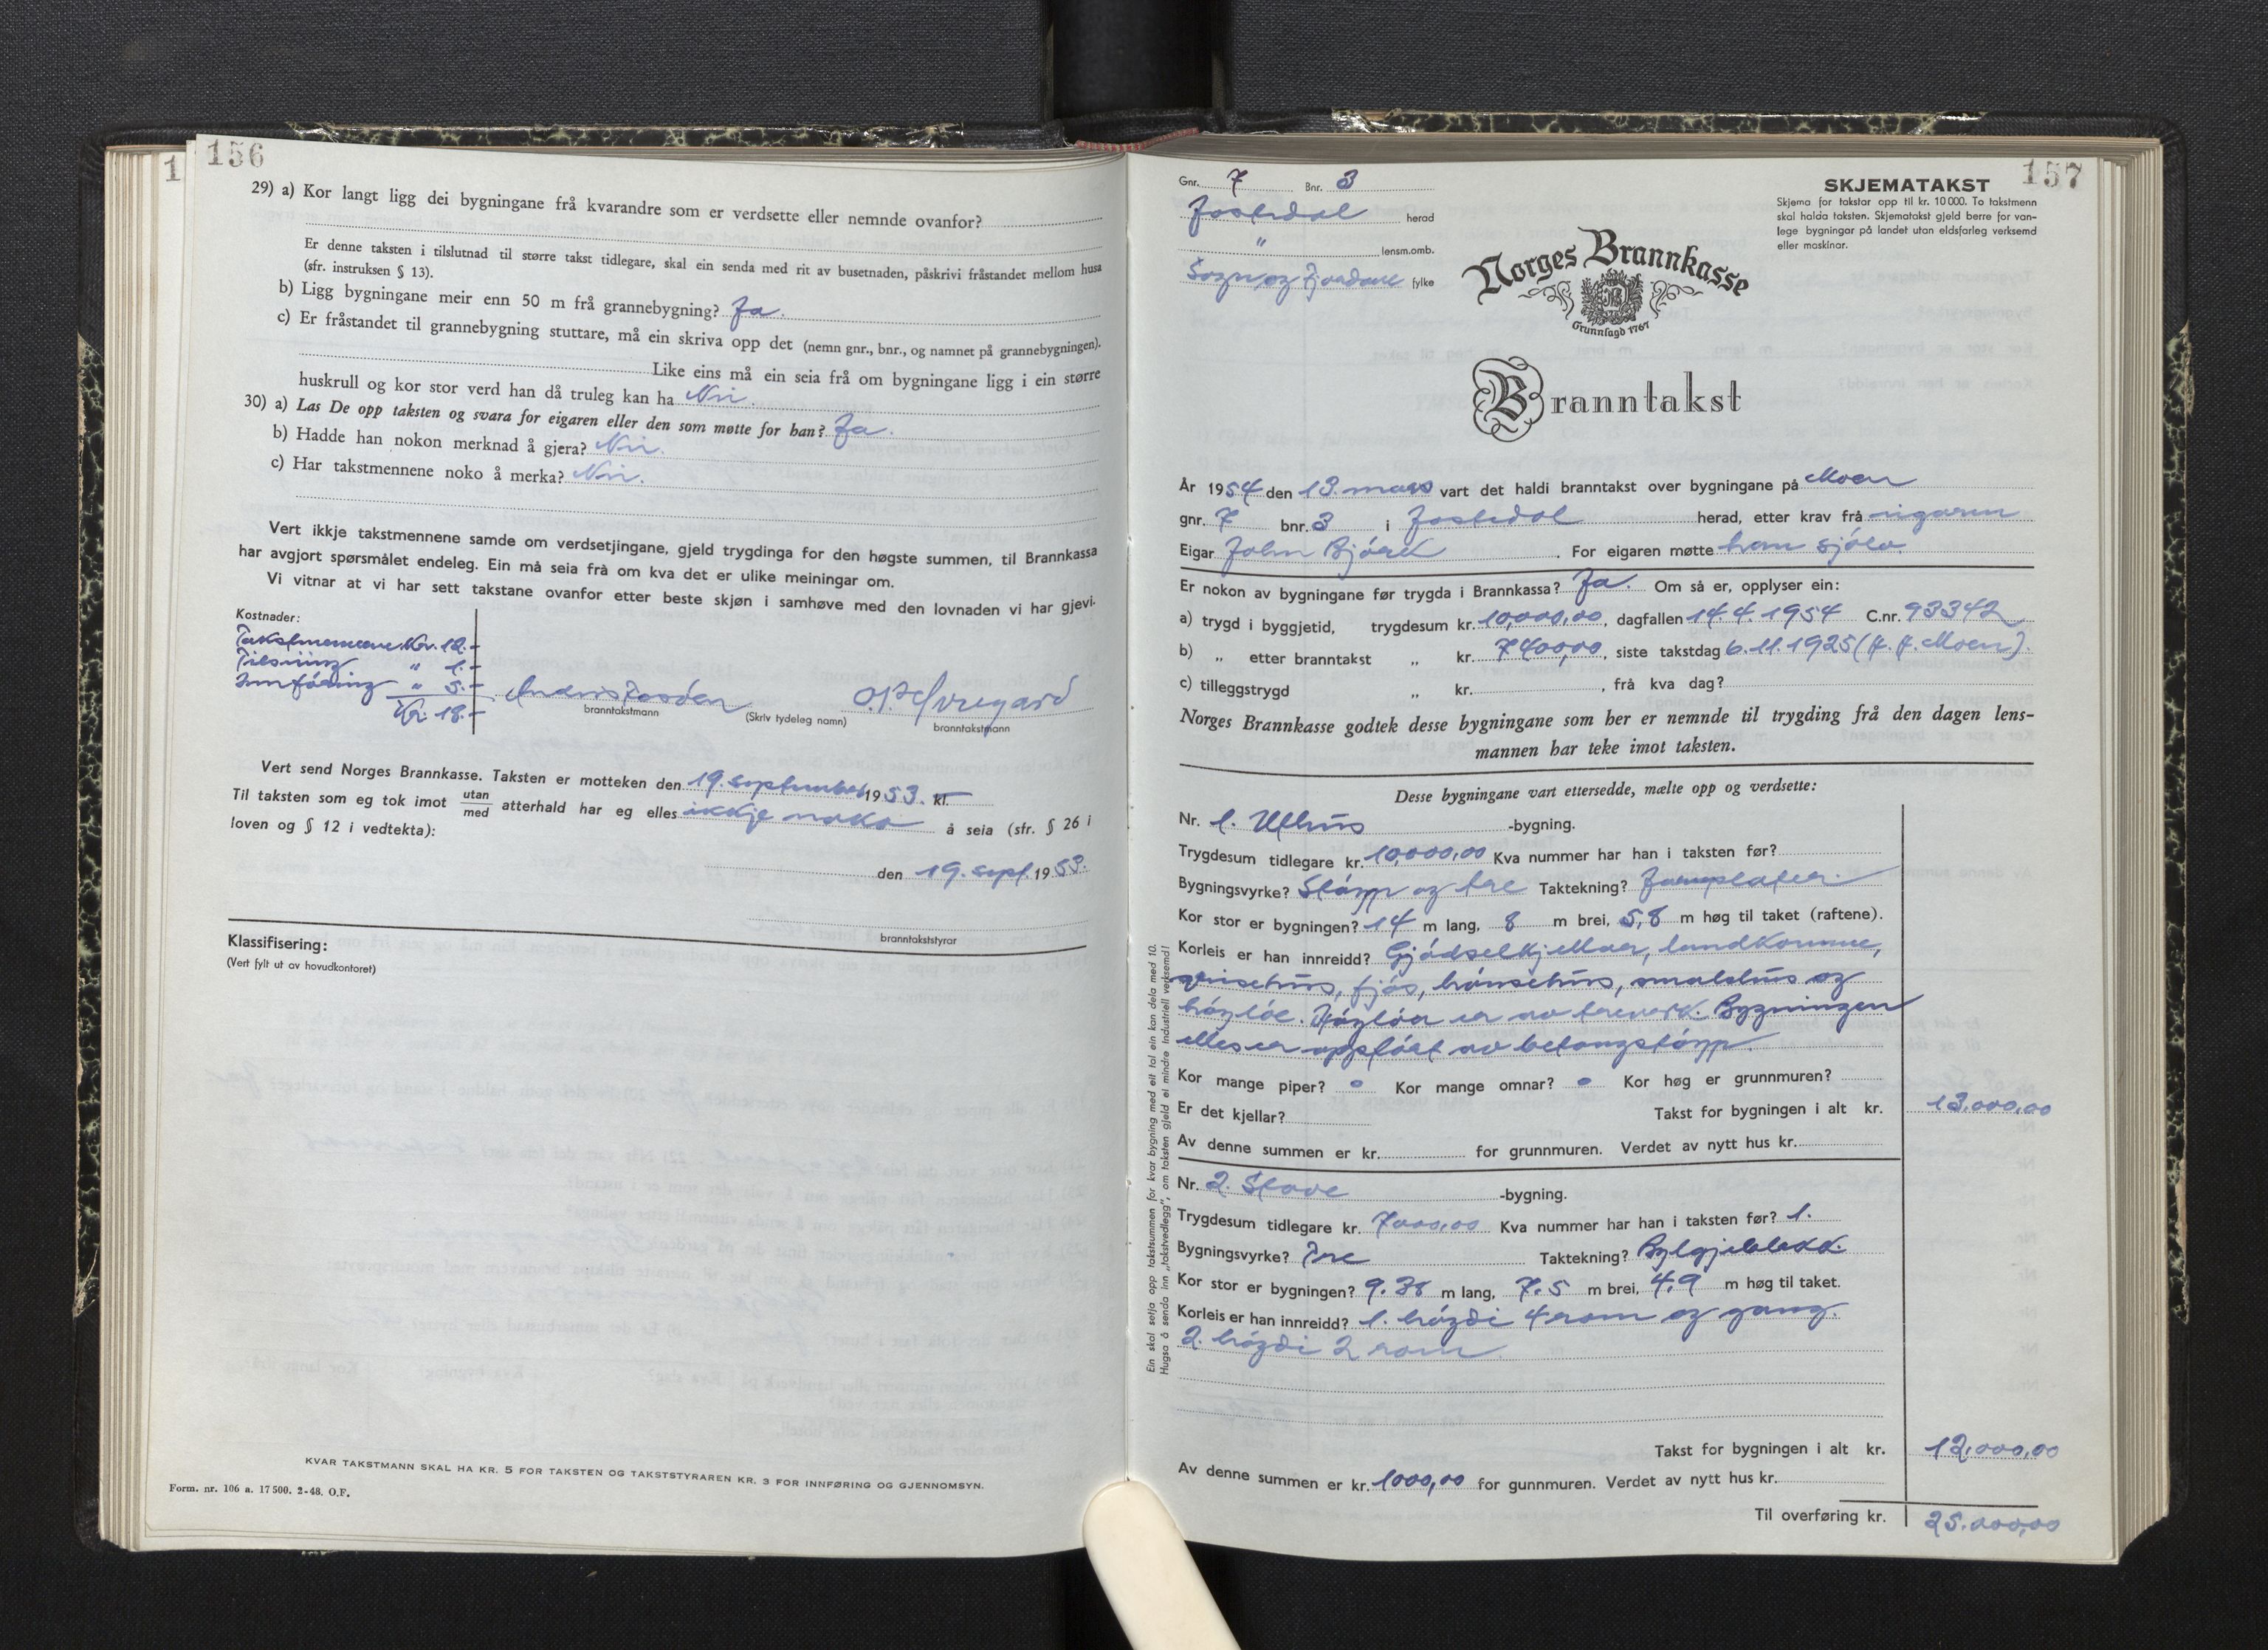 156
29) a) Kor langt ligg dei bygningane frå kvarandre som er verdsette eller nemnde ovanfor?
Er denne taksten i tilslutnad til større takst tidlegare, skal ein senda med rit av busetnaden, påskrivi fråstandet mellom husa
(sfr. instruksen § 13).
b) Ligg bygningane meir enn 50 m frå grannebygning? Ja.
c) Er fråstandet til grannebygning stuttare, må ein skriva opp det (nemn gnr., bnr., og namnet på grannebygningen).
Like eins må ein seia frå om bygningane ligg i ein større
huskrull og kor stor verd han då truleg kan ha Nei.
30) a) Las De opp taksten og svara for eigaren eller den som møtte for han? Ja.
b) Hadde han nokon merknad å gjera? Nei.
c) Har takstmennene noko å merka? Nei.
Vert ikkje takstmennene samde om verdsetjingane, gjeld trygdinga for den høgste summen, til Brannkassa
har avgjort spørsmålet endeleg. Ein må seia frå om kva det er ulike meiningar om.
Vi vitnar at vi har sett takstane ovanfor etter beste skjøn i samhøve med den lovnaden vi har gjevi.
Kostnader:
Takstmennene. Kr. 12.-
Tilsyning " 1.-
Innføring " 5.-
Kr. 18.-
O. P. Øvregard
branntakstmann
(Skriv tydeleg namn)
branntakstmann
Vert send Norges Brannkasse. Taksten er motteken den 19. september 1953. kl.
Til taksten som eg tok imot utan/med atterhald har eg elles ikkje noko å seia (sfr. § 26 i
loven og § 12 i vedtekta):
den 19. sept. 1953.
branntakststyrar
Klassifisering:
(Vert fylt ut av hovudkontoret)
KVAR TAKSTMANN SKAL HA KR. 5 FOR TAKSTEN OG TAKSTSTYRAREN KR. 3 FOR INNFØRING OG GJENNOMSYN.
Form. nr. 106 a. 17 500. 2-48. O.F.
157
Gnr. 7 Bnr. 3
Jostedal herad
" lensm.omb.
Sogn og Fjordane fylke
SKJEMATAKST
Skjema for takstar opp til kr. 10 000. To takstmenn
skal halda taksten. Skjematakst gjeld berre for van-
lege bygningar på landet utan eldsfarleg verksemd
eller maskinar.
Norges Brannkasse
Grunnlagd 1767
Branntakst
År 1954 den 13. mars vart det haldi branntakst over bygningane på Moen
gnr. 7 bnr. 3 i Jostedal herad, etter krav frå eigaren
Eigar John Bjørk. For eigaren møtte han sjølv
Er nokon av bygningane før trygda i Brannkassa? Ja. Om så er, opplyser ein:
a) trygd i byggjetid, trygdesum kr. 10,000,00, dagfallen 14.4.1954 C.nr. 93342
b) " etter branntakst " kr. 7400,00, siste takstdag 6.11.1925 (J. J. Moen).
c) tilleggstrygd " kr. , frå kva dag?
Norges Brannkasse godtek desse bygningane som her er nemnde til trygding frå den dagen lens-
mannen har teke imot taksten.
Desse bygningane vart ettersedde, mælte opp og verdsette:
Nr. 1. Uthus -bygning.
Trygdesum tidlegare kr. 10,000,00 Kva nummer har han i taksten før?
Bygningsvyrke? Støyp og tre Taktekning? Jarnplater.
Kor stor er bygningen? 14 m lang, 8 m brei, 5,8 m høg til taket (raftene).
Korleis er han innreidd? Gjødselkjellar, landkumme,
grisehus, fjøs, hønsehus, smalehus og
høyløe. Høyløa er av treverk. Bygningen
elles er oppført av betongstøyp.
Kor mange piper? 0 Kor mange omnar? 0 Kor høg er grunnmuren?
Er det kjellar? Takst for bygningen i alt kr. 13.000,00
Av denne summen er kr. for grunnmuren. Verdet av nytt hus kr.
Nr. 2. Stove -bygning.
Trygdesum tidlegare kr. 7000,00 Kva nummer har han i taksten før? 1.
Bygningsvyrke? Tre Taktekning? Bylgjeblekk.
Kor stor er bygningen? 9.38 m lang, 7,5 m brei, 4,9 m høg til taket.
Korleis er han innreidd? 1. høgdi 4 rom og gang.
2. høgdi 2 rom.
Takst for bygningen i alt kr. 12,000,00
Av denne summen er kr. 1000,00 for gunnmuren. Verdet av nytt hus kr.
Til overføring kr. 25.000,00
Ein skal setja opp takstsummen for kvar bygning med eit tal ein kan dela med 10.
Hugsa å senda inn "takstvedlegg", om taksten gjeld ei mindre industriell verksemd!